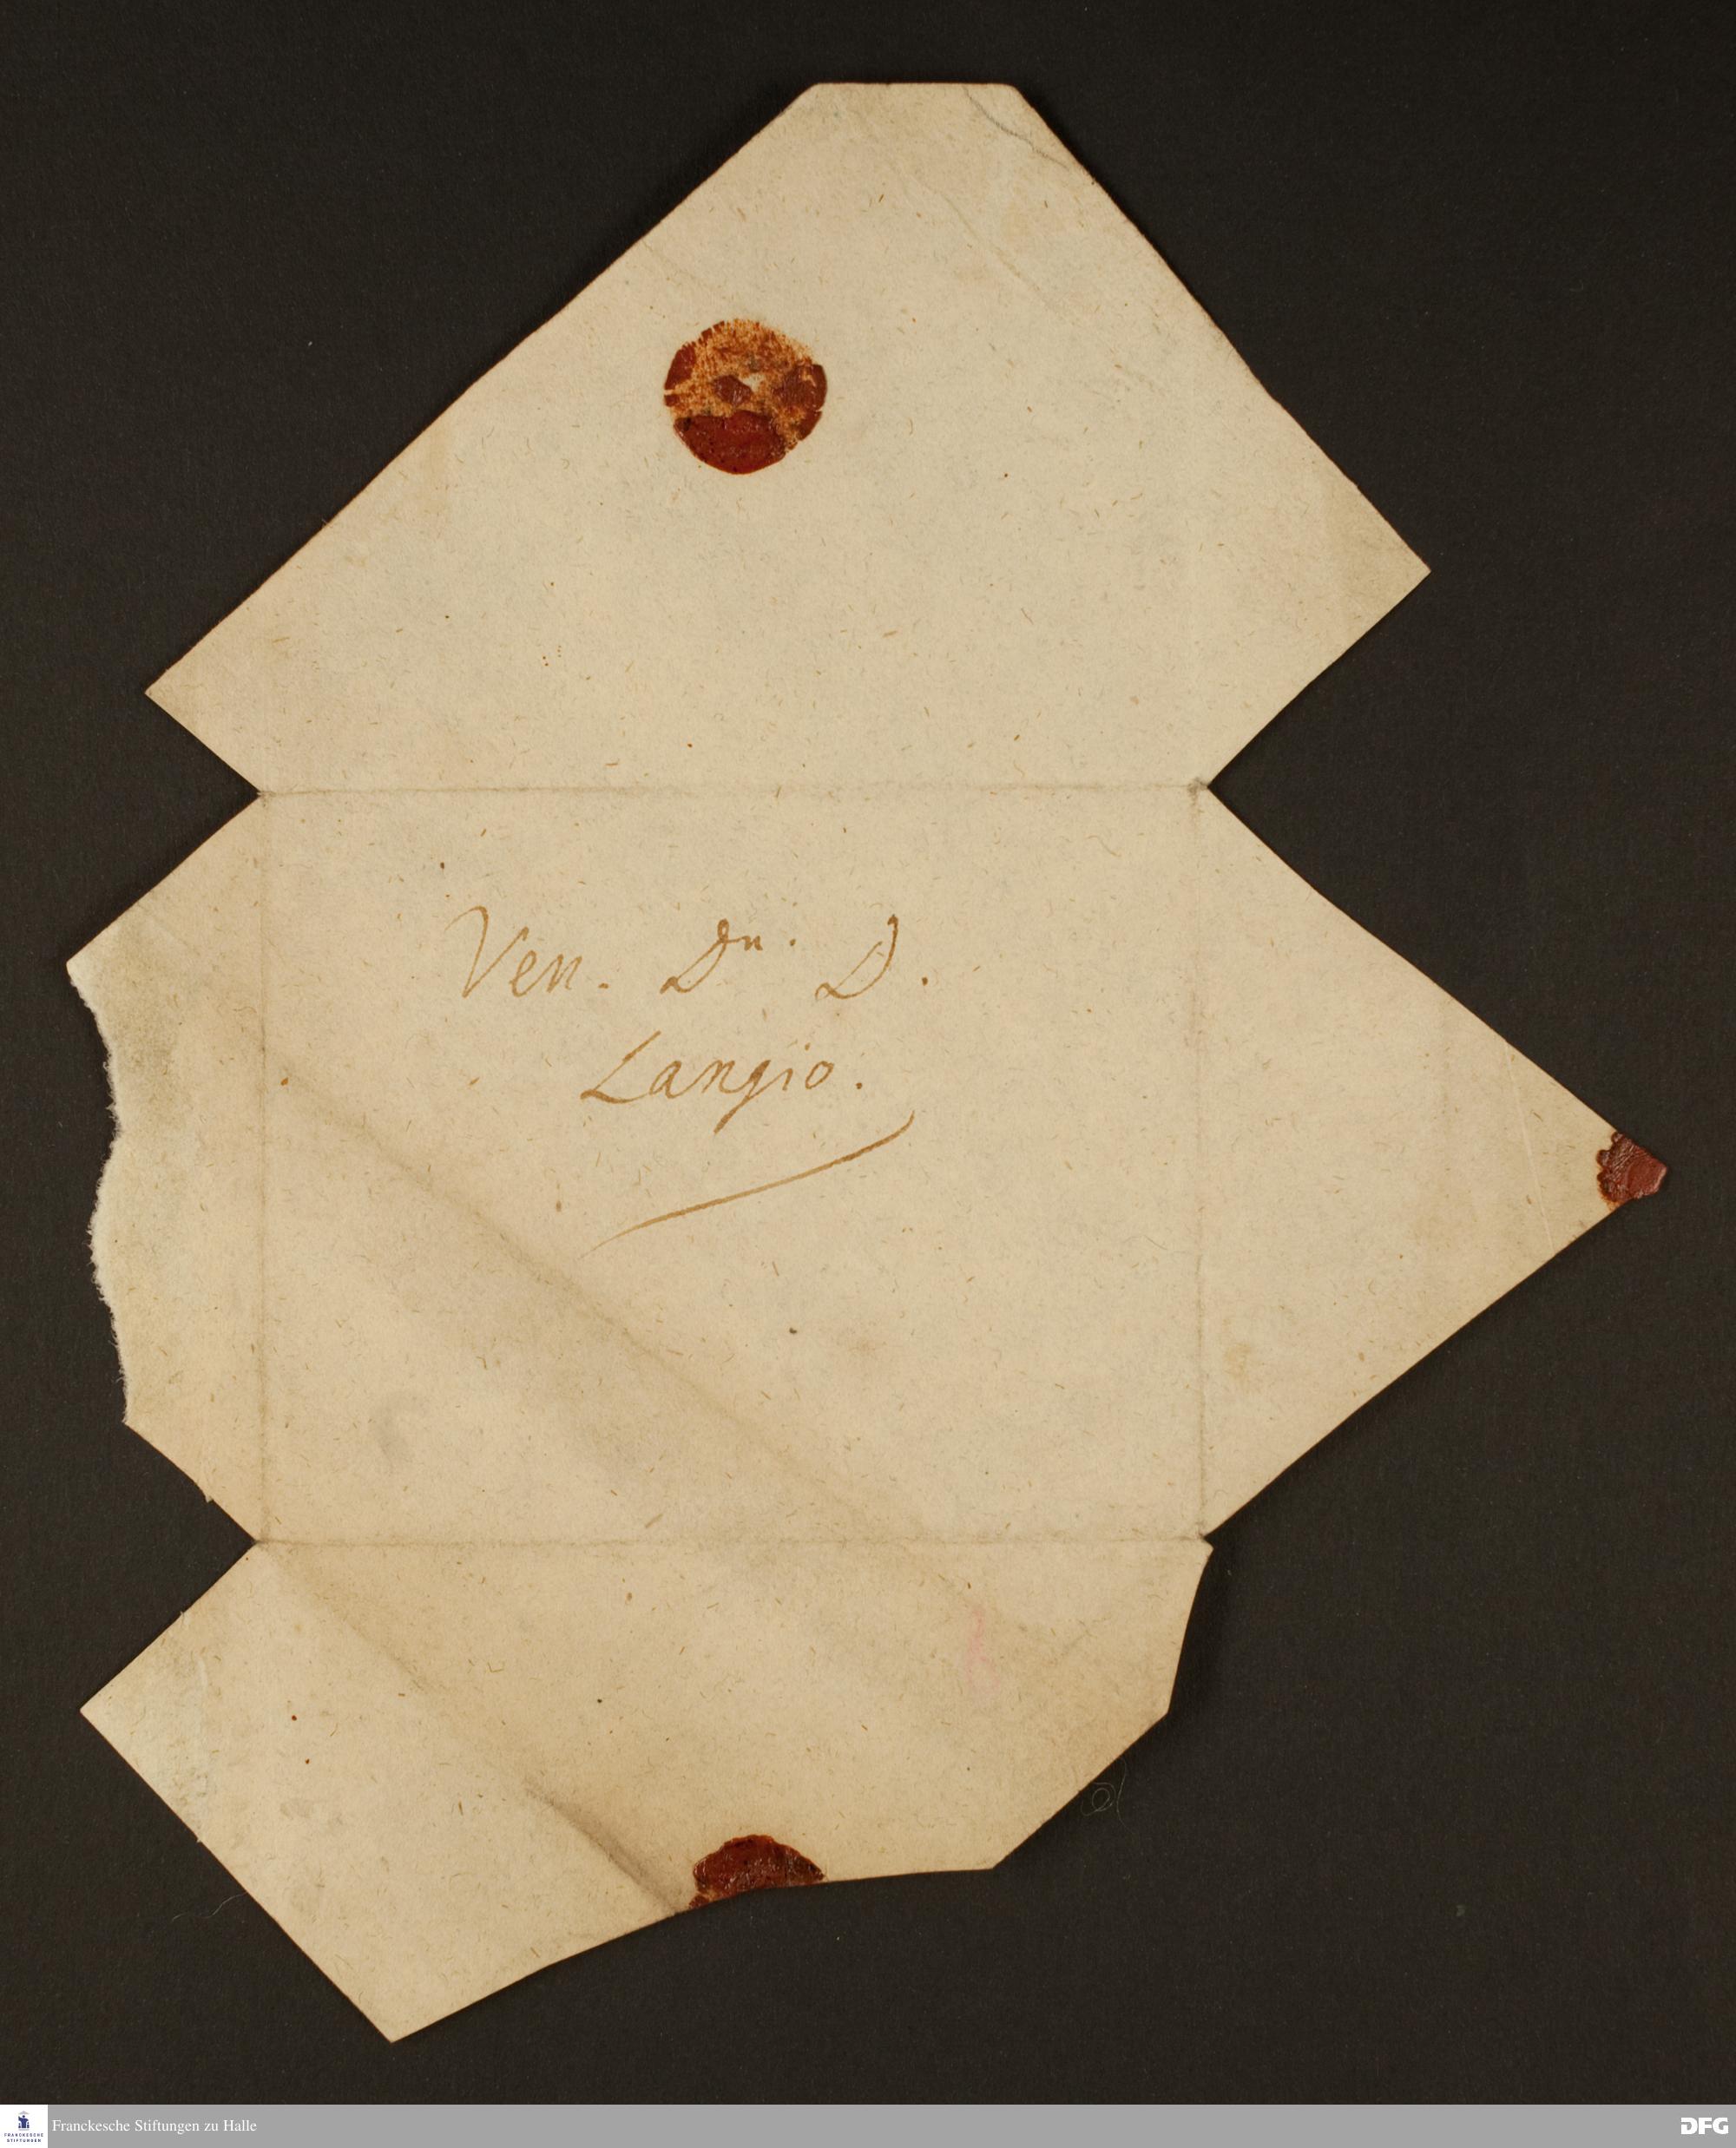 Ven. Dn. D.
Langio.
FRANCKESCHE
STIFTUNGEN
Franckesche Stiftungen zu Halle
DFG